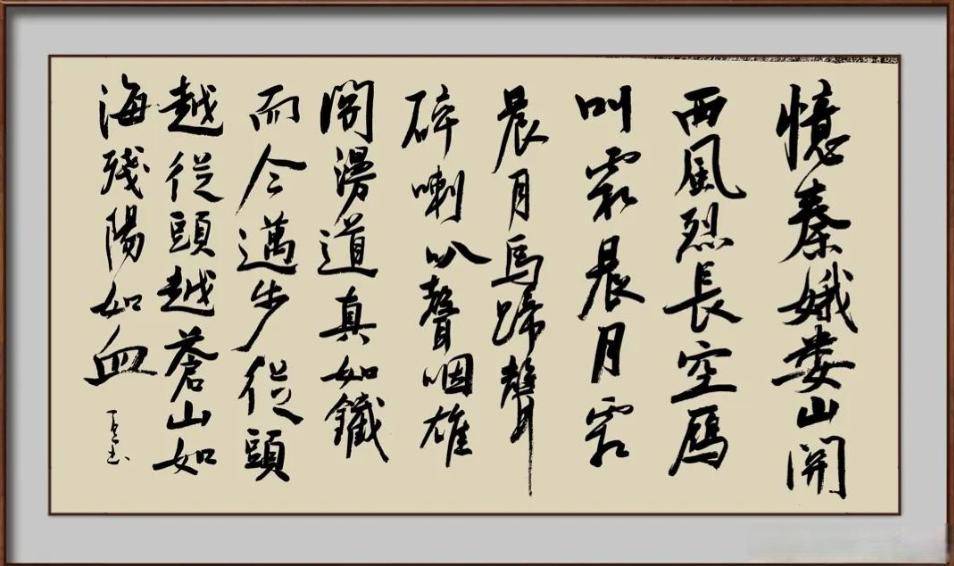 憶秦娥婁山開
西風烈長空鴈
叫霜晨月霜
晨月馬蹄聲
碎喇叭聲咽雄
関漫道真如鐵
而今邁步從頭
越從頭越蒼山如
海殘陽如血